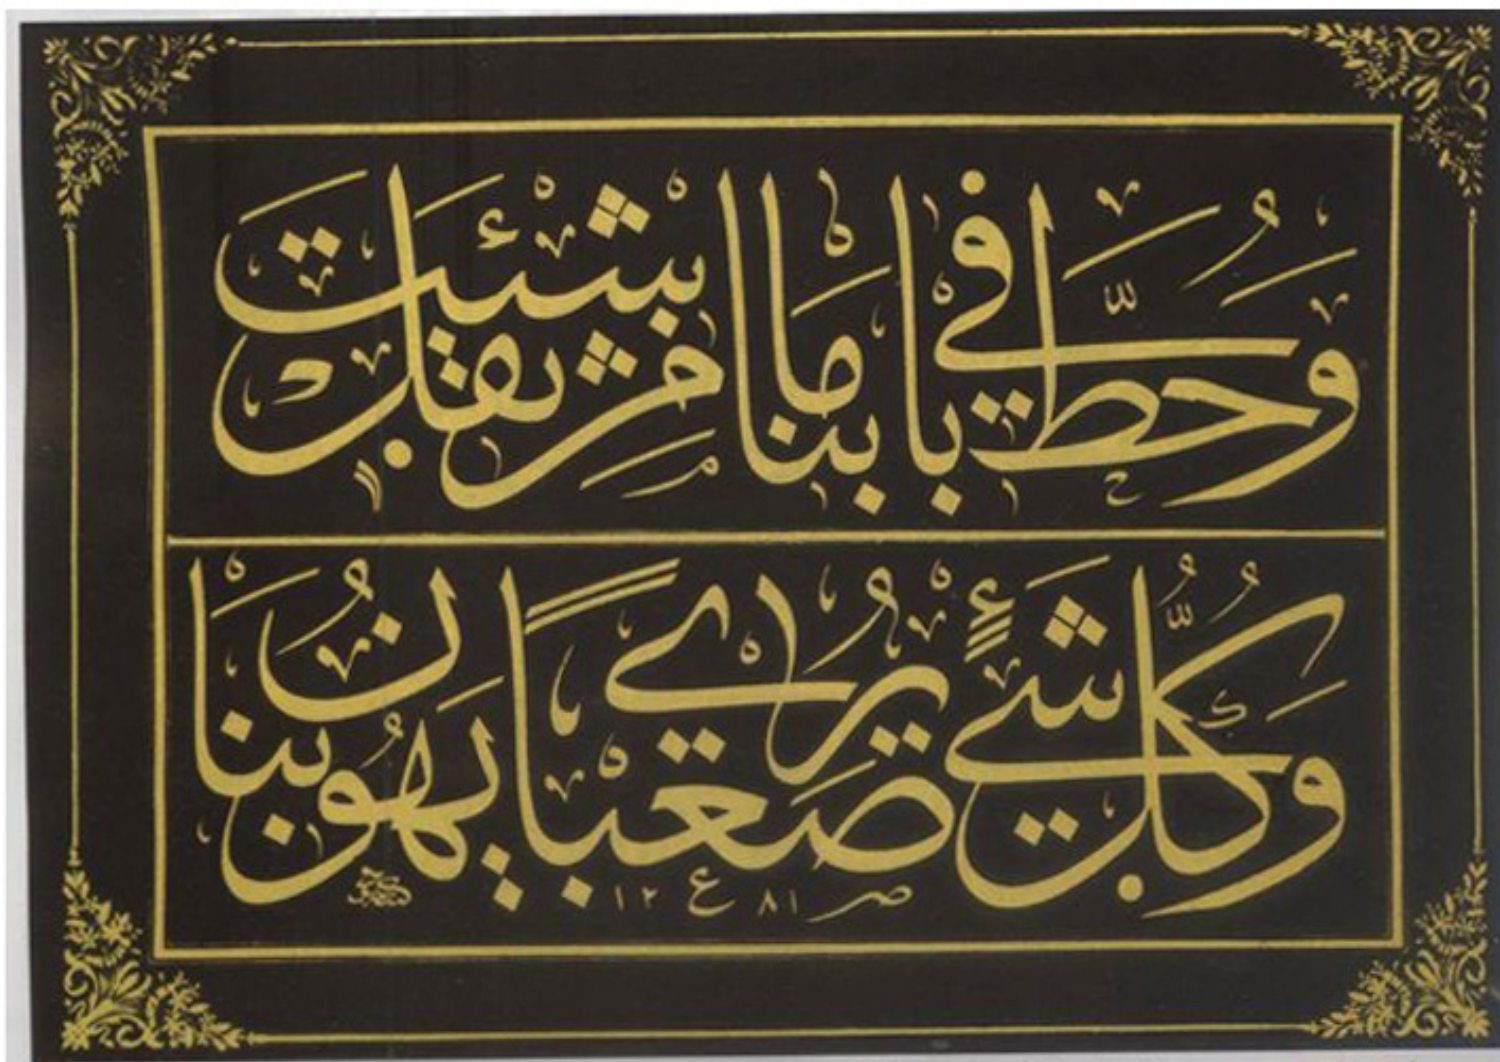 وَحُطَّ فِي بَابِنَا مَا شِئْتَ مِنْ ثِقَلٍ
وَكُلُّ شَيْءٍ يُرَى صَعْبًا يَهُونُ بِنَا
١٢ ٨١